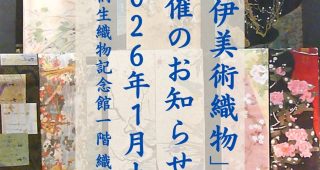 伊美術織物」
催のお知らせ
026年1月
桐生織物記念館一階 織